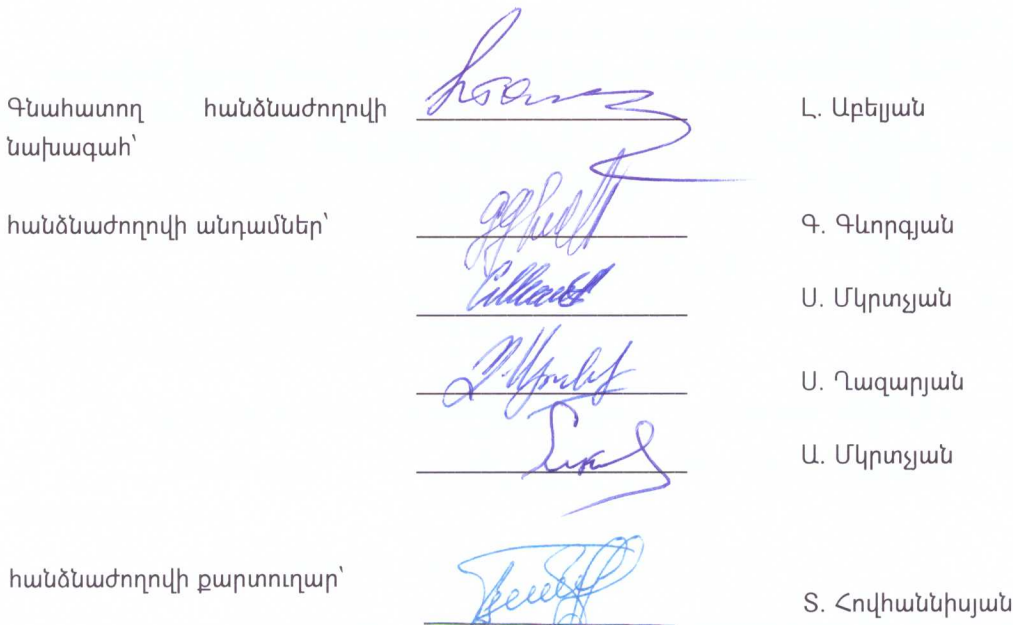 Գնահատող հանձնաժողովի Լ. Աբելյան
նախագահ՝
հանձնաժողովի անդամներ՝ Գ. Գևորգյան
Ս. Մկրտչյան
Ս. Ղազարյան
Ա. Մկրտչյան
հանձնաժողովի քարտուղար՝
Տ. Հովհաննիսյան